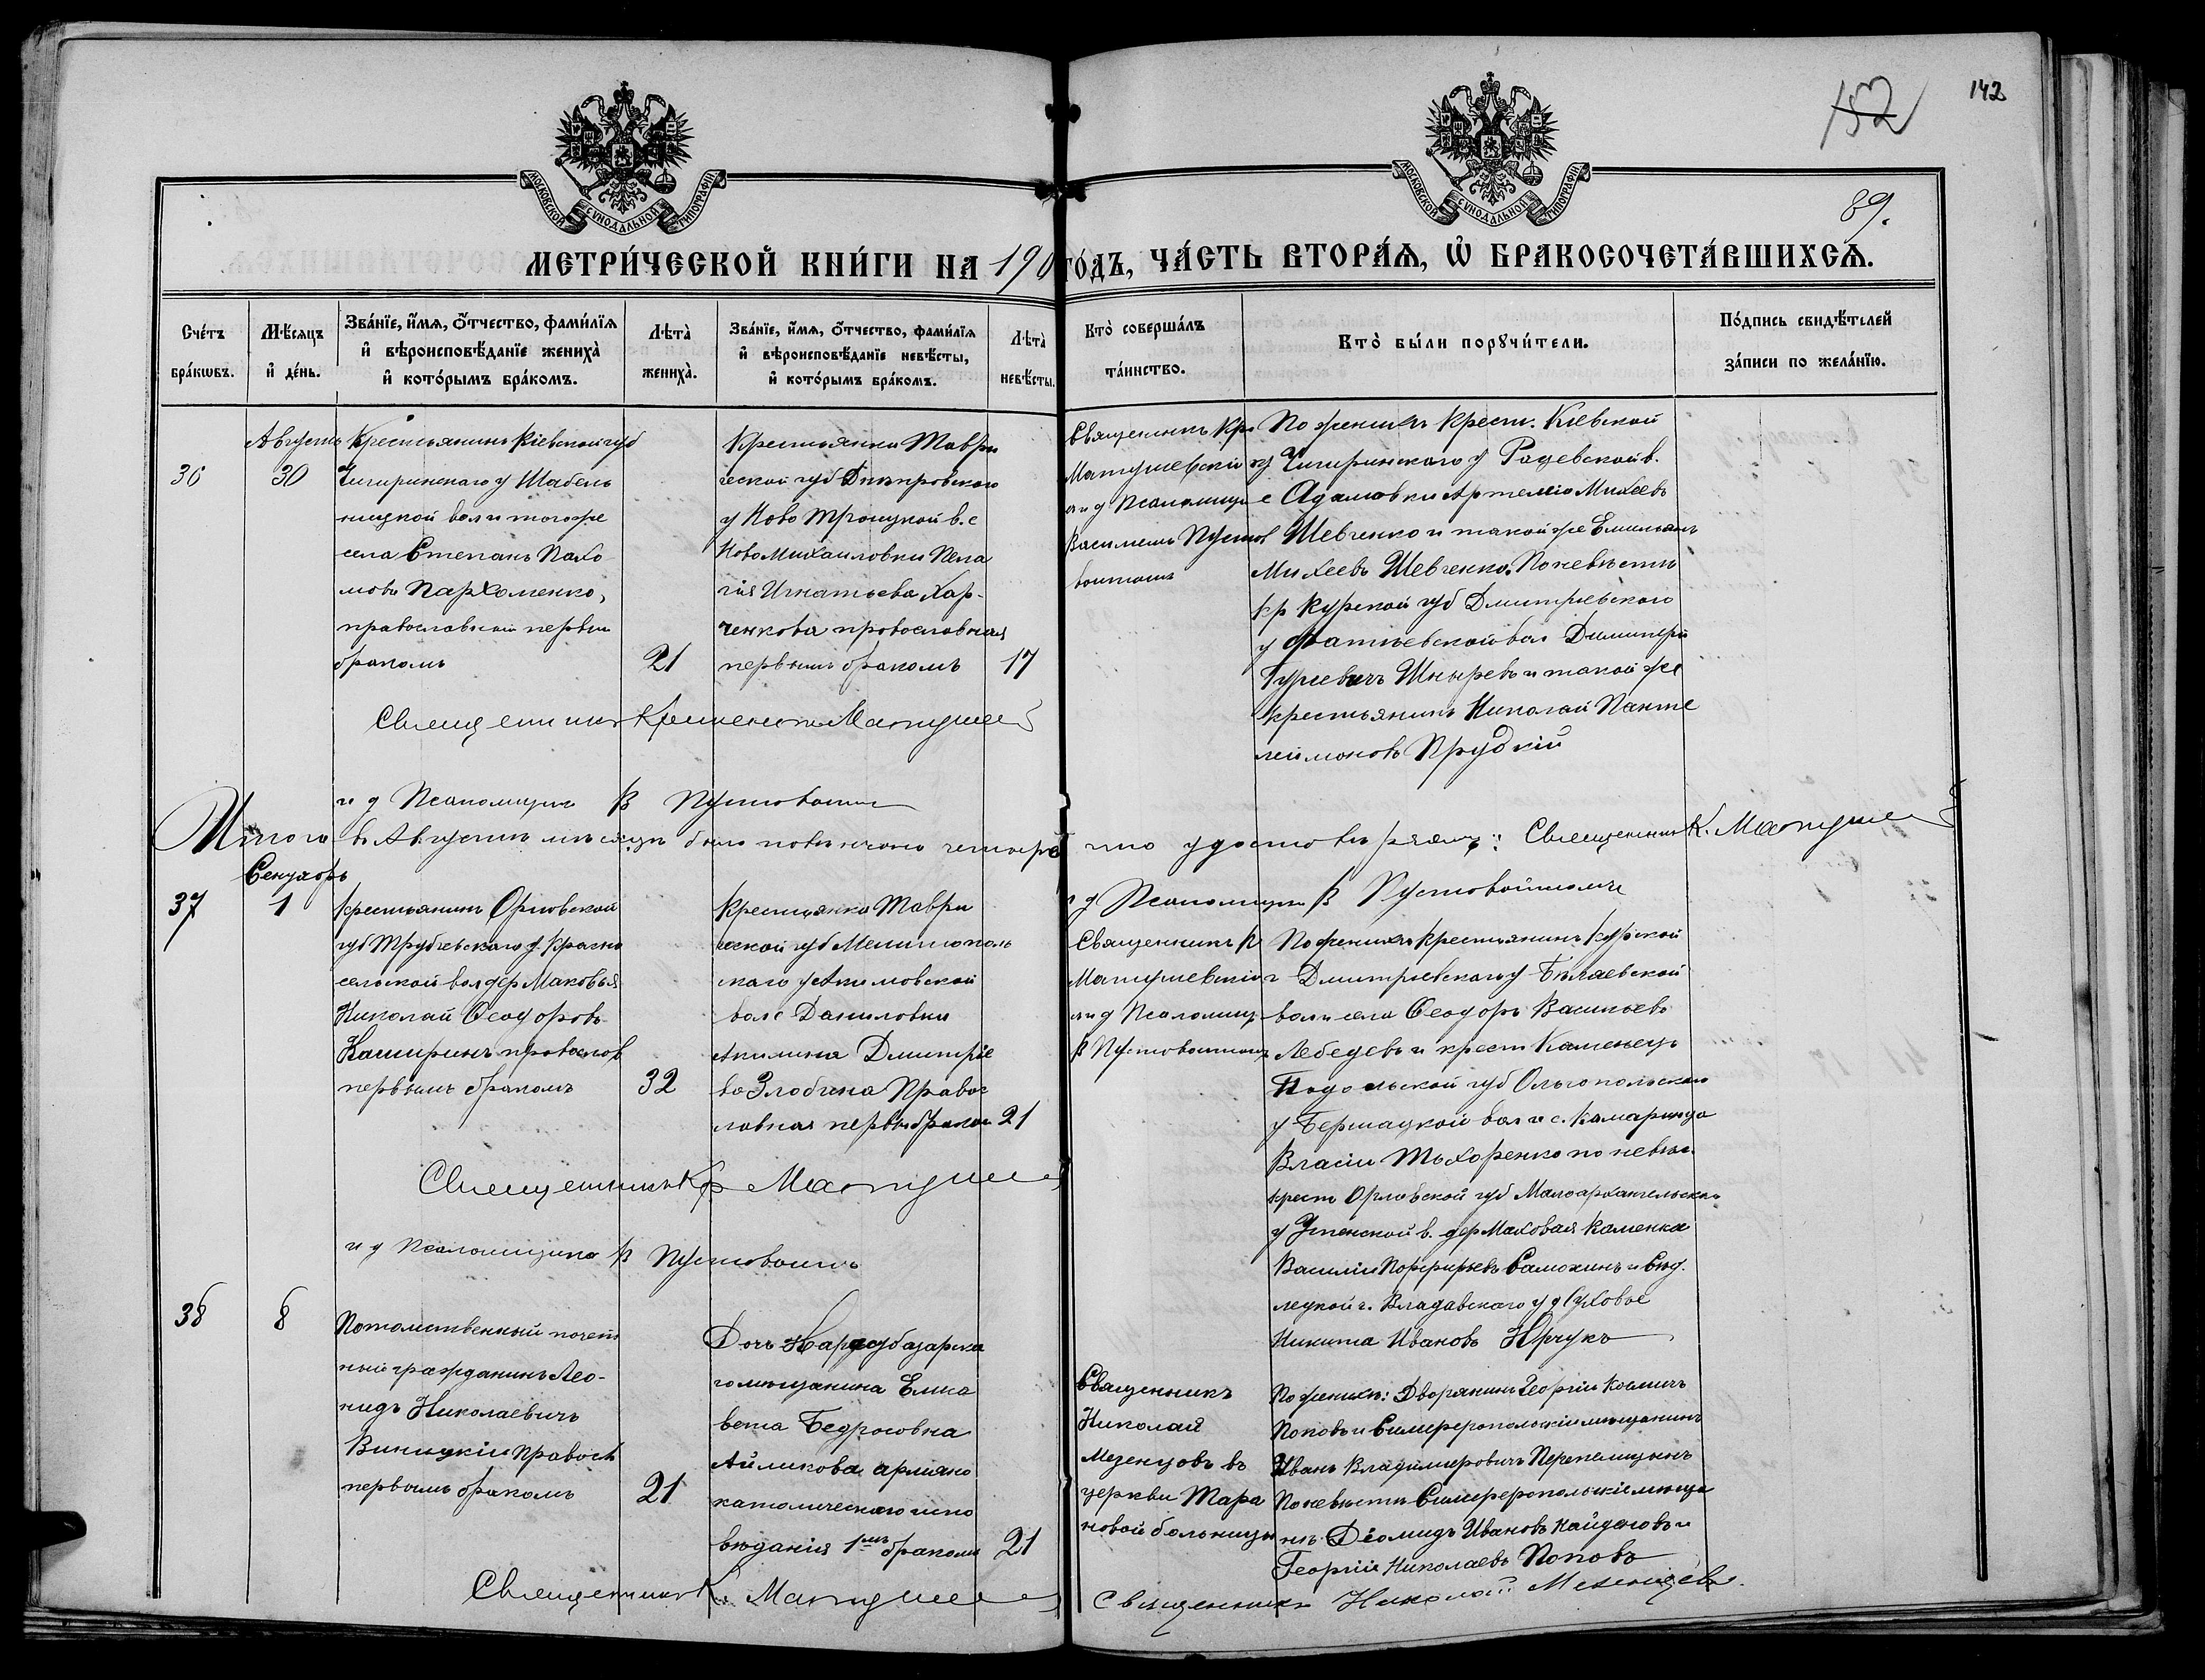 152
142
89.
МОСКОВСКОЙ СУНОДАЛЬНОЙ ТИПОГРАФІИ
МОСКОВСКОЙ СУНОДАЛЬНОЙ ТИПОГРАФІИ
МЕТРИ́ЧЕСКОЙ КНИ́ГИ НА 190 ГО́ДЪ, ЧА́СТЬ ВТОРА́Я, Ѽ БРАКОСОЧЕТА́ВШИХСЯ.
Сче́тъ бра́кѡвъ.
Мѣ́сяцъ и҆ де́нь.
Зва́нїе, и҆́мя, ѻ҆́тчество, фами́лїя и҆ вѣроисповѣ́данїе жениха̀ и҆ кото́рымъ бра́комъ.
Лѣта̀ жениха̀.
Зва́нїе, и҆́мя, ѻ҆́тчество, фами́лїя и҆ вѣроисповѣ́данїе невѣ́сты, и҆ кото́рымъ бра́комъ.
Лѣта̀ невѣ́сты.
Кто̀ соверша́лъ та́инство.
Кто̀ бы́ли порꙋчи́тели.
По́дпись свидѣ́телей за́писи по жела́нїю.
36
Августъ
30
Крестьянинъ Кіевской губ
Чигиринскаго у Шабель
ницкой вол и того же
села Степанъ Пахо
мовъ Пархоменко,
православный первым
бракомъ
21
Крестьянка Таври
ческой губ Днѣпровского
у Ново Троицкой в. с
Ново Михаиловки Пела
гія Игнатьева Хар-
ченкова провославная
первымъ бракомъ
17
Священникъ Кр.
Матушевскій
и д Псаломщи
Василіемъ Пустов
войтомъ
По женихѣ Крест. Кіевской
г Чигиринскаго у Ратевской в.
с Адамовки Артемій Михеевъ
Шевченко и такой же Емильянъ
Михеевъ Шевченко. По невѣстѣ
кр Курской губ Дмитріевского
у Фатѣевской вол Димитрій
Гуріевичъ Шныревъ и такой же
крестьянинъ Николай Панте
леймоновъ Прудкій
Священникъ Матушев
и д Псаломщик В Пустовойт
Итого въ Августѣ мѣсяцѣ было повѣнчано четыре что удостовѣряемъ: Священникъ К. Матушев
и д Псаломщик В Пустовойтомъ
37
Сентябрь
1
Крестьянинъ Орловской
губ Трубчевскаго у. Красно
сельской вол дер Маковья
Николай Ѳеодоровъ
Каширинъ провослов
первымъ бракомъ
32
Крестьянка Таври
ческой губ Мелитополь
скаго у Акимовской
вол с Даниловки
Акилина Дмитріе
ва Злобина Правос
лавная первым браком
21
Священникъ К
Матушевскій
и д Псаломщ
В Пустовойтомъ
По женихѣ крестьянинъ Курской
г Дмитріевскаго у Бѣляевской
вол и села Ѳеодоръ Васильевъ
Лебедевъ и крест Каменець
Подольской губ Ольгопольскаго
у Бершадской вол и с.
Власій Тхоренко по невѣс.
крест Орловской губ Малоархангельскаго
у Успенской в. дер Маховая Каменка
Василій Порфирьевъ Самохинъ и Сѣд.
лецкой г. Владавскаго у д Суховое
Никита Ивановъ
Священникъ Кр Матушев
и д Псаломщика В Пустовойтъ
38
8
Потомственный почетн
ный гражданинъ Лео-
нидъ Николаевичъ
Виницкій Правосл
первымъ бракомъ
21
Дочь Карасубазарска
го мѣщанина Елиса
вета Бедросовна
Айликова армяно
католическаго испо
вѣданія 1мъ бракомъ
21
Священникъ
Николай
Мезенцовъ въ
церкви Тара
новой больницы
По женихѣ: Дворянинъ Георгій Козмичъ
Поповъ и Симферопольскій мѣщанинъ
Иванъ Владимировичъ Перепелицынъ
По невѣстѣ Симферопольскіе мѣща
не Діомидъ Ивановъ Кайдановъ и
Георгій Николаевъ Поповъ
Священникъ К. Матушев
Священникъ Николай Мезенцовъ.